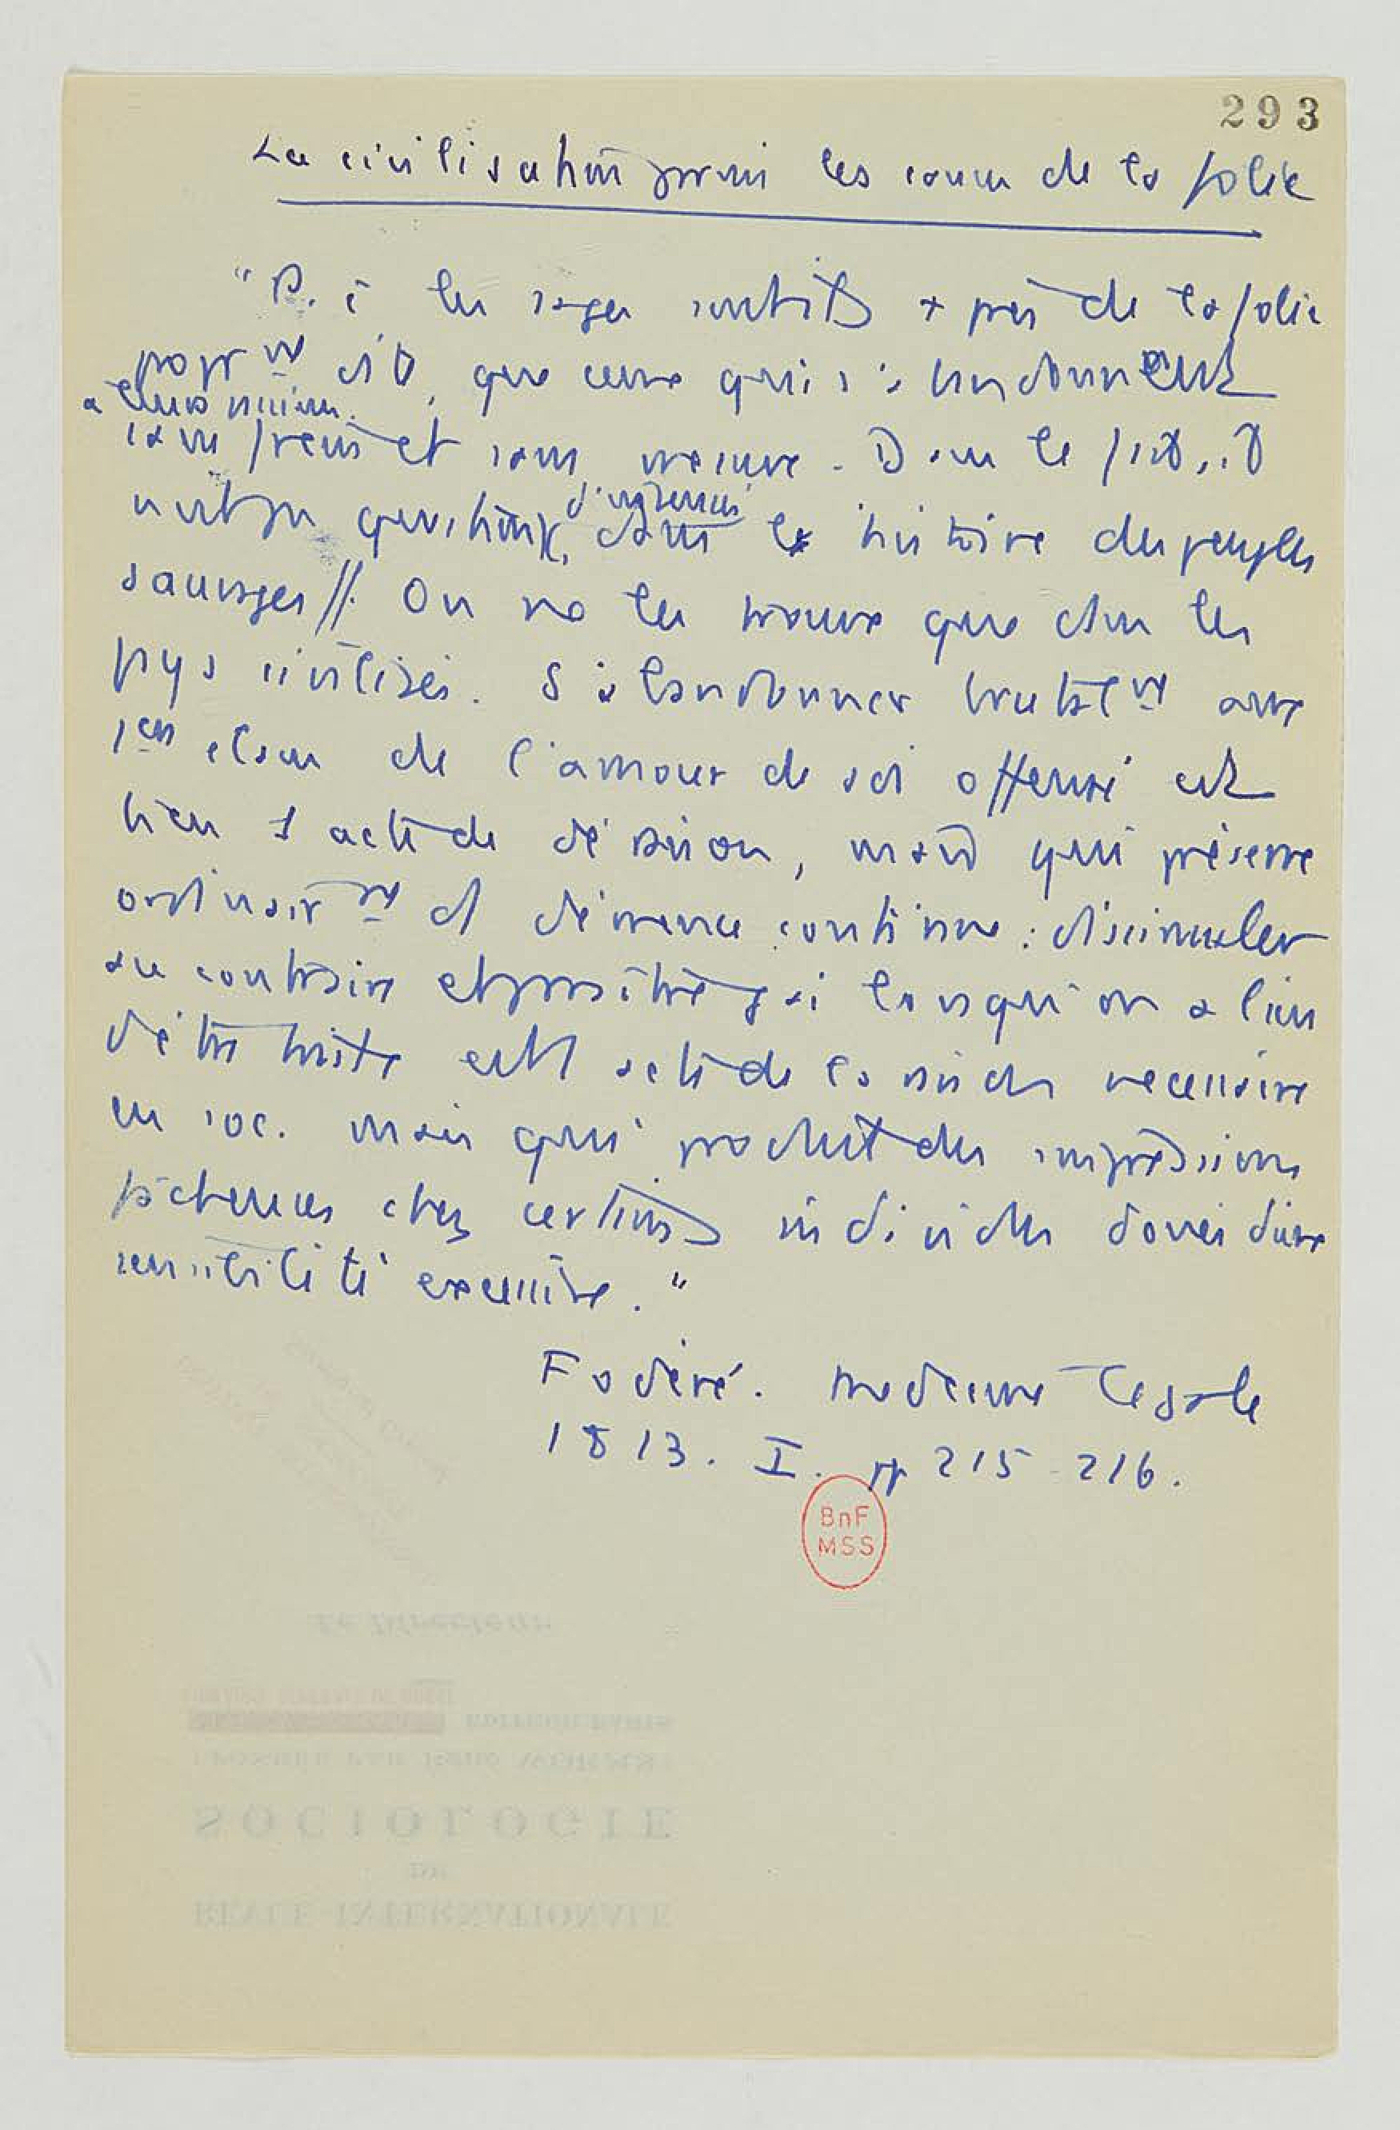 293
La civilisation parmi les causes de la folie
les sages sont + près de la folie
que ceux qui s'abandonnent
à leurs
sans frein et sans mesure. Dans le
question, d'insensés dans l'histoire des peuples
sauvages //. On ne les trouve que dans les
pays civilisés. S'abandonner brutalᵐᵗ aux
1ers élans de l'amour de soi offensé est
bien 1 acte de déraison, mais qui préserve
ordinairᵐᵗ d' démence continue : dissimuler
au contraire et paraître gai lorsqu'on a lieu
d'être triste est 1 acte de raison necessaire
en soc. mais qui produit des impressions
facheuses chez certains individus doués d'une
sensibilité excessive."
Foderé. Medecine legale
1813. I. pp 215-216.
BnF
MSS
Le Directeur
SOCIOLOGIE
DE
INTERNATIONALE